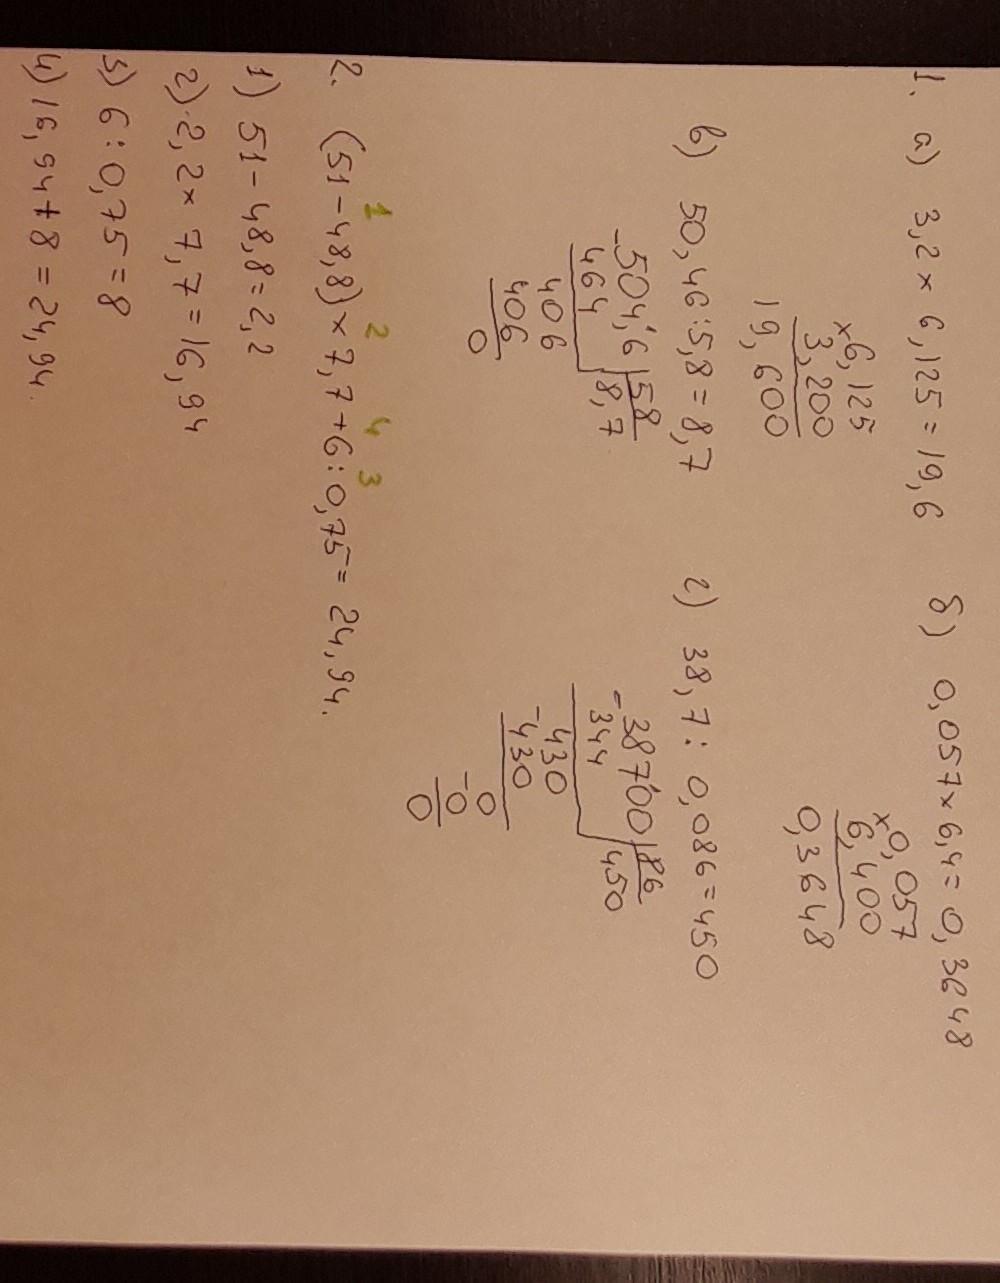 1. а) 3,2 × 6,125 = 19,6 б) 0,057 × 6,4 = 0,3648
× 6,125
3,200
19,600
× 0,057
6,400
0,3648
в) 50,46 : 5,8 = 8,7 г) 38,7 : 0,086 = 450
- 504,6 | 58
464 8,7
406
406
0
- 38700 | 86
344 450
- 430
430
- 0
0
0
1 2 4 3
2. (51 - 48,8) × 7,7 + 6 : 0,75 = 24,94.
1) 51 - 48,8 = 2,2
2) 2,2 × 7,7 = 16,94
3) 6 : 0,75 = 8
4) 16,94 + 8 = 24,94.